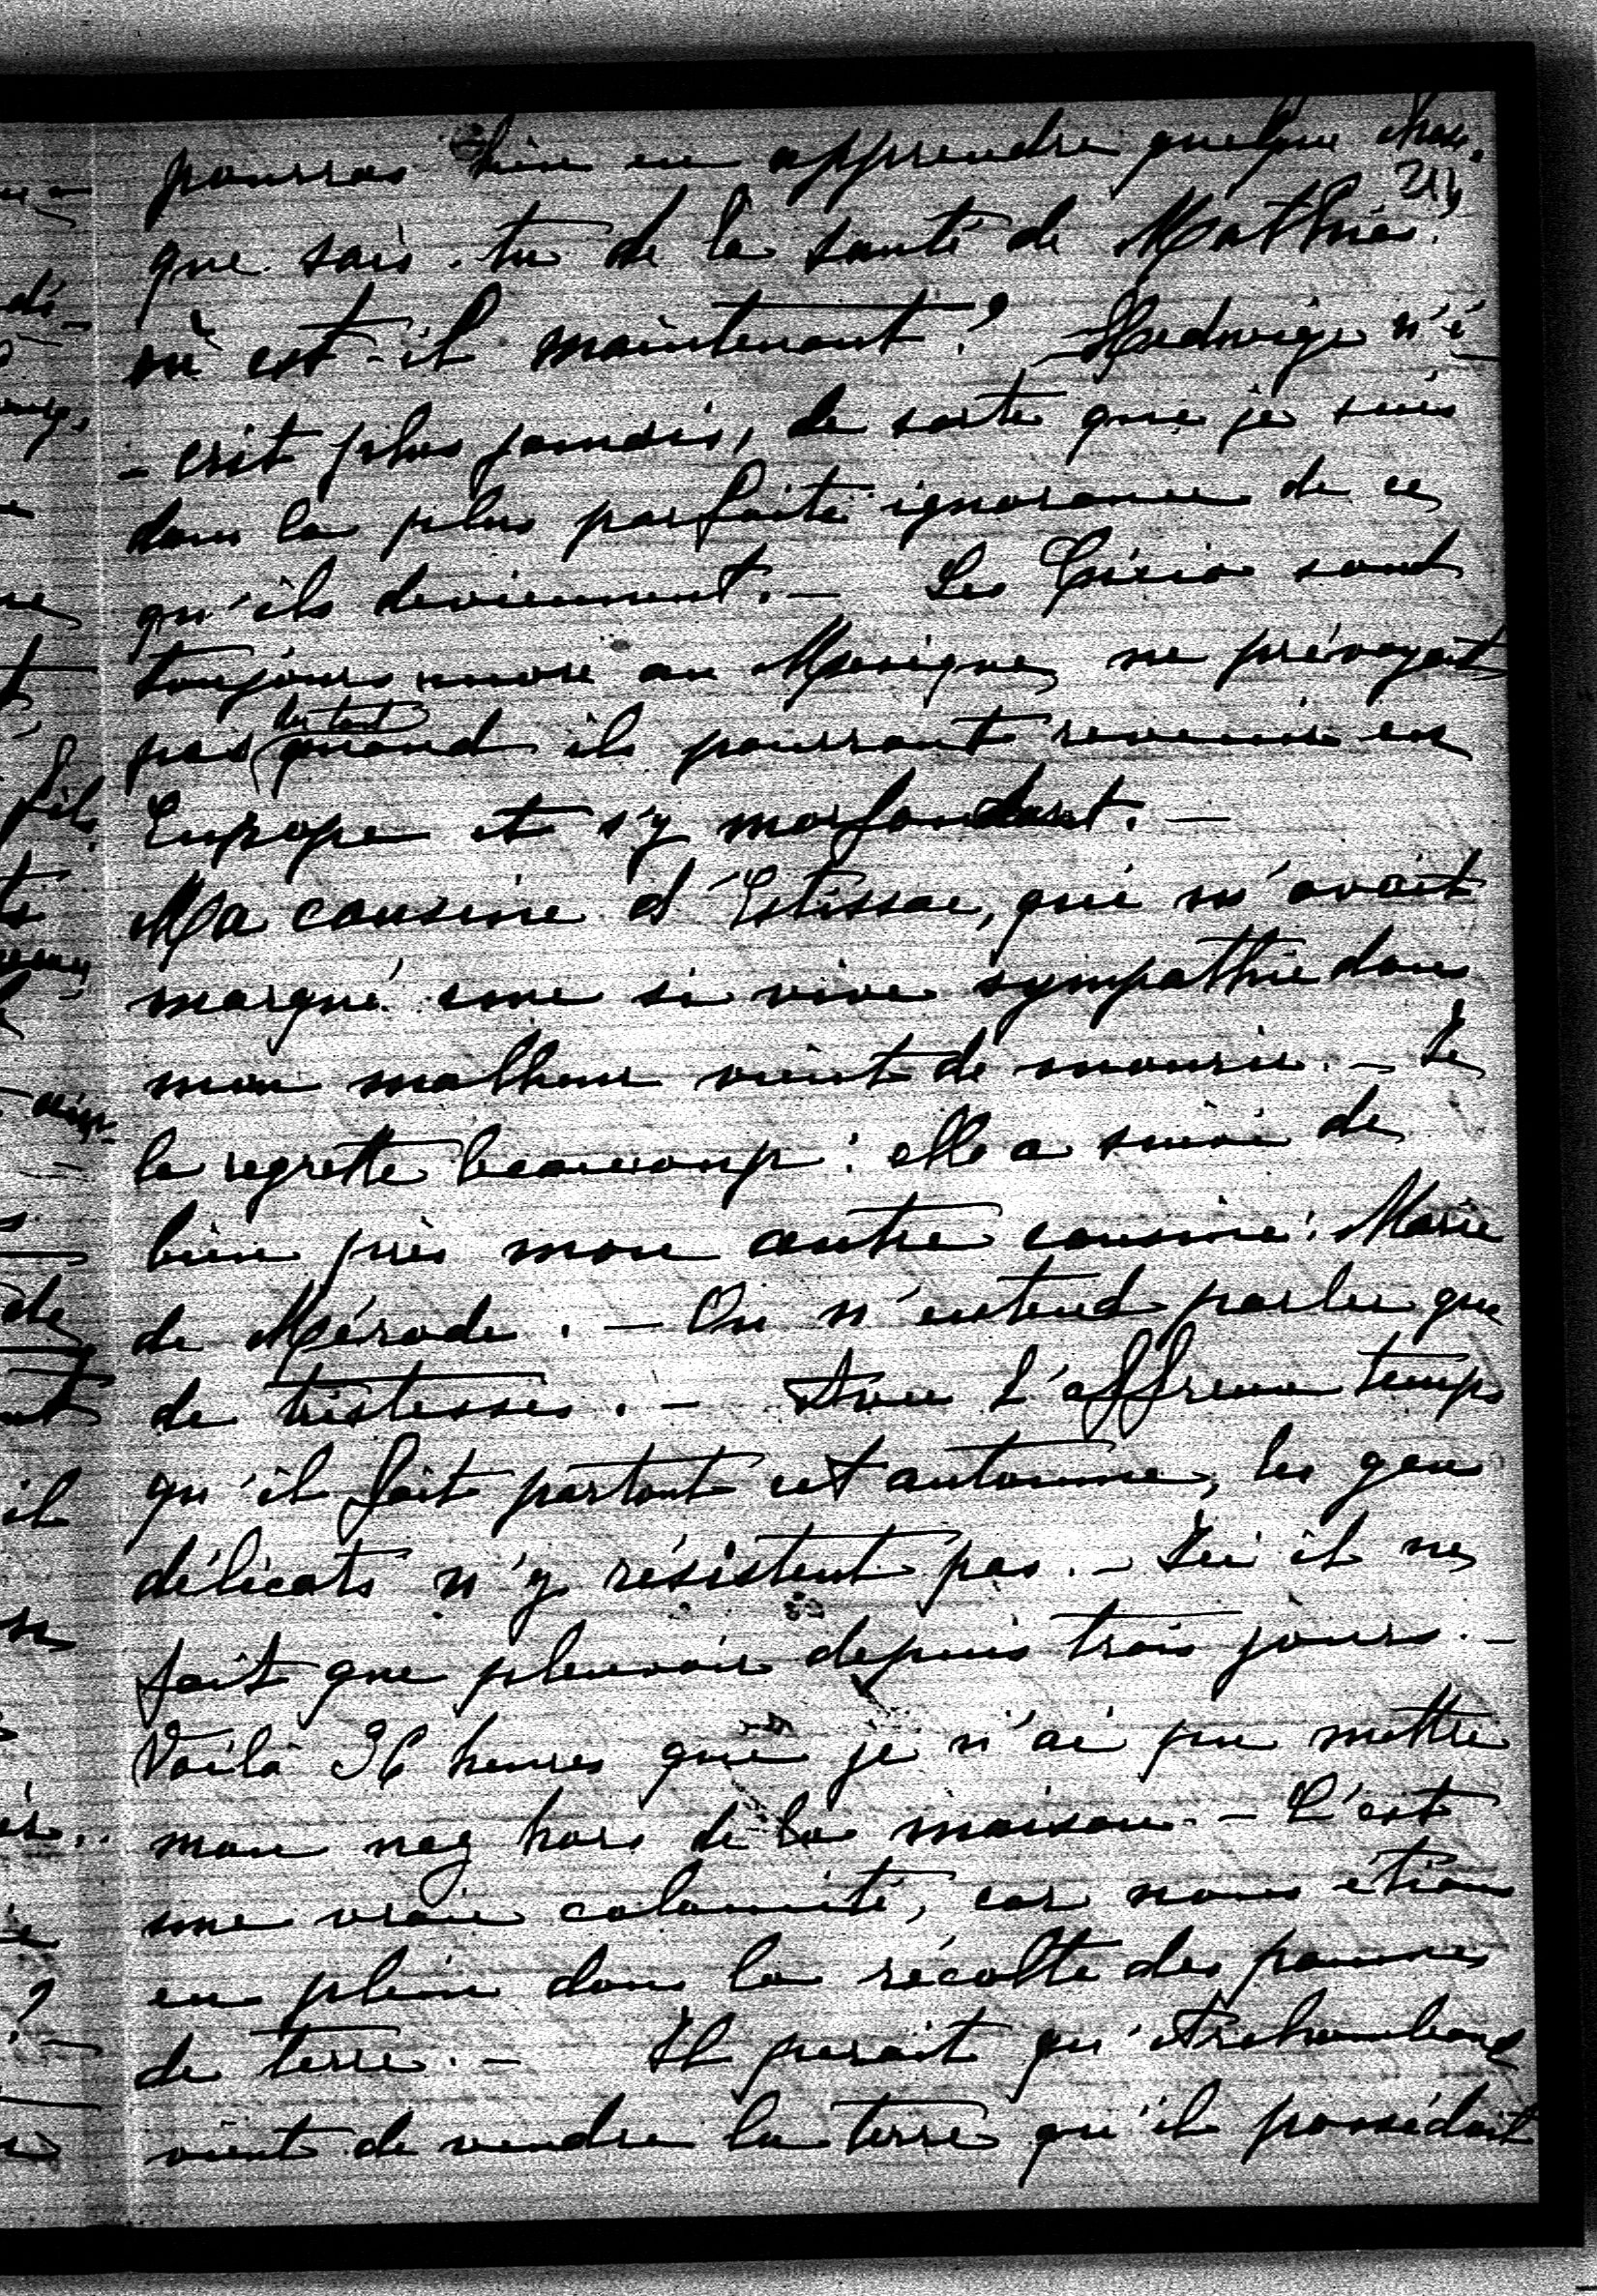 pourras bien en apprendre quelque chose.
que sais-tu de la santé de Mathias.
où est-il maintenant ? Hedwige n'é
- crit plus jamais, de sorte que je suis
dans la plus parfaite ignorance de ce
qu'ils deviennent. - Les sont
toujours encore au Mexique, ne prévoyant
pas du tout quand ils pourront revenir en
Europe et s'y morfondant. -
Ma cousine d'Estissac, qui m'avait
marqué une si vive sympathie dans
mon malheur vient de mourir. - Je
la regrette beaucoup : elle a suivi de
bien près mon autre cousine : Marie
de Mérode. - On n'entend parler que
de tristesses. - Avec l'affreux temps
qu'il fait partout cet automne, les gens
délicats n'y résistent pas. - Ici il ne
fait que pleuvoir depuis trois jours. -
Voilà 36 heures que je n'ai pu mettre
mon nez hors de la maison. - C'est
une vraie calamité, car nous étions
en plein dans la récolte des pommes
de terre. - Il parait qu'Archambaud
vient de vendre la terre qu'il possédait